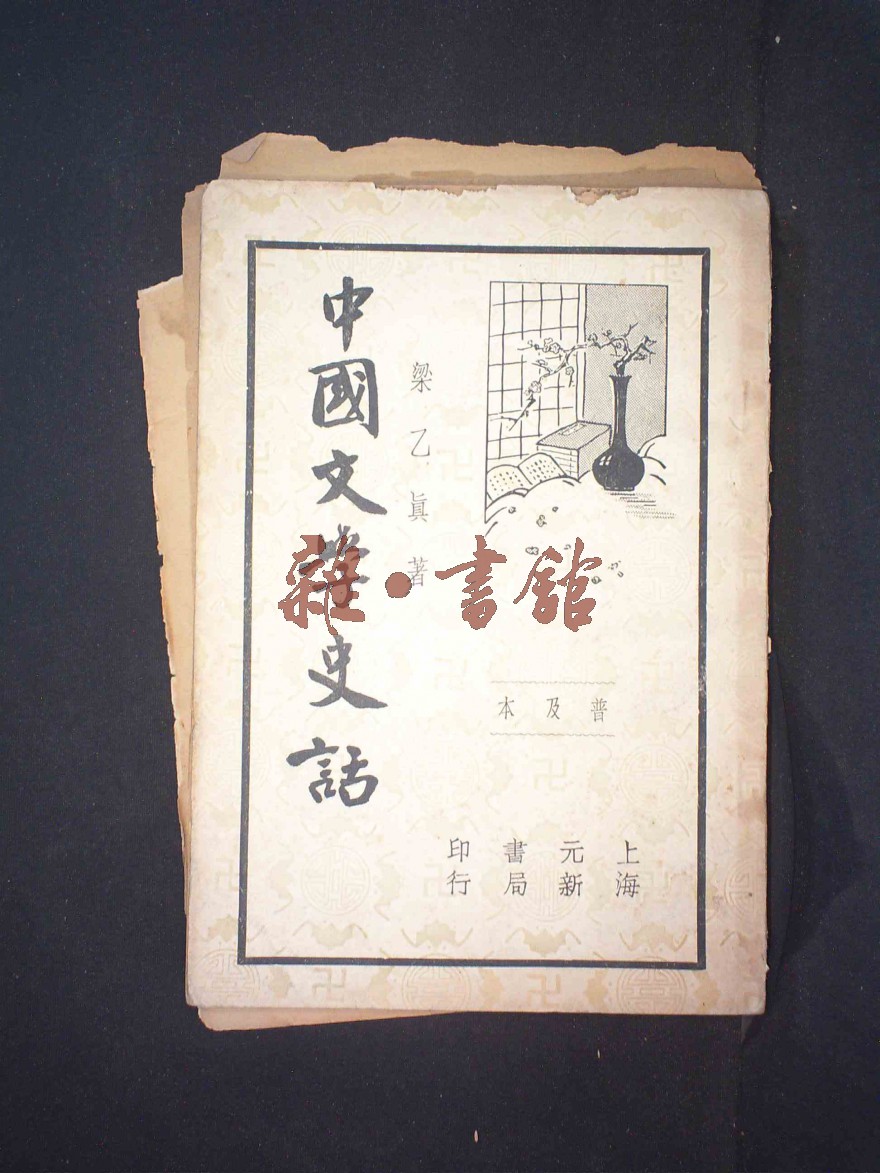 中國文學史話
梁乙眞著
普及本
上海
元新
書局
印行
雜·書館